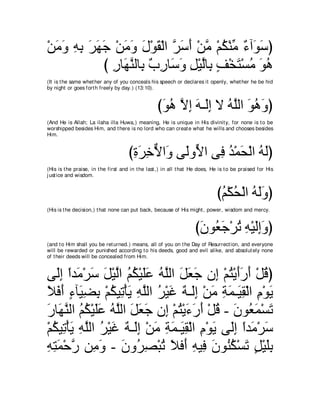 (سَوَآءٌ مِّنْكُمْ مَّنْ أَسَرَّ الْقَوْلَ وَمَنْ جَهَرَ بِهِ وَمَنْ
هُوَ مُسْتَخْفٍ بِالَّيْلِ وَسَارِبٌ بِالنَّهَارِ )
(It is the same whether any of you conceals his speech or declares it openly, whether he be hid
by night or goes forth freely by day.) (13:10).
(وَهُوَ اللَّهُ لا إِلَـهَ إِلاَّ هُوَ)
(And He is Allah; La ilaha illa Huwa,) meaning, He is unique in His divinity, for none is to be
worshipped besides Him, and there is no lord who can create what he wills and chooses besides
Him.
(لَهُ الْحَمْدُ فِى الاٍّولَى وَالاٌّخِرَةِ)
(His is the praise, in the first and in the last,) in all that He does, He is to be praised for His
justice and wisdom.
(وَلَهُ الْحُكْمُ)
(His is the decision,) that none can put back, because of His might, power, wisdom and mercy.
(وَإِلَيْهِ تُرْجَعُونَ)
(and to Him shall you be returned.) means, all of you on the Day of Resurrection, and everyone
will be rewarded or punished according to his deeds, good and evil alike, and absolutely none
of their deeds will be concealed from Him.
(قُلْ أَرَأَيْتُمْ إِن جَعَلَ اللَّهُ عَلَيْكُمُ الَّيْلَ سَرْمَداً إِلَى
يَوْمِ الْقِيَـمَةِ مَنْ إِلَـهٌ غَيْرُ اللَّهِ يَأْتِيكُمْ بِضِيَآءٍ أَفَلاَ
تَسْمَعُونَ - قُلْ أَرَءَيْتُمْ إِن جَعَلَ اللَّهُ عَلَيْكُمُ النَّهَارَ
سَرْمَداً إِلَى يَوْمِ الْقِيَـمَةِ مَنْ إِلَـهٌ غَيْرُ اللَّهِ يَأْتِيكُمْ
بِلَيْلٍ تَسْكُنُونَ فِيهِ أَفلاَ تُبْصِرُونَ - وَمِن رَّحْمَتِهِ